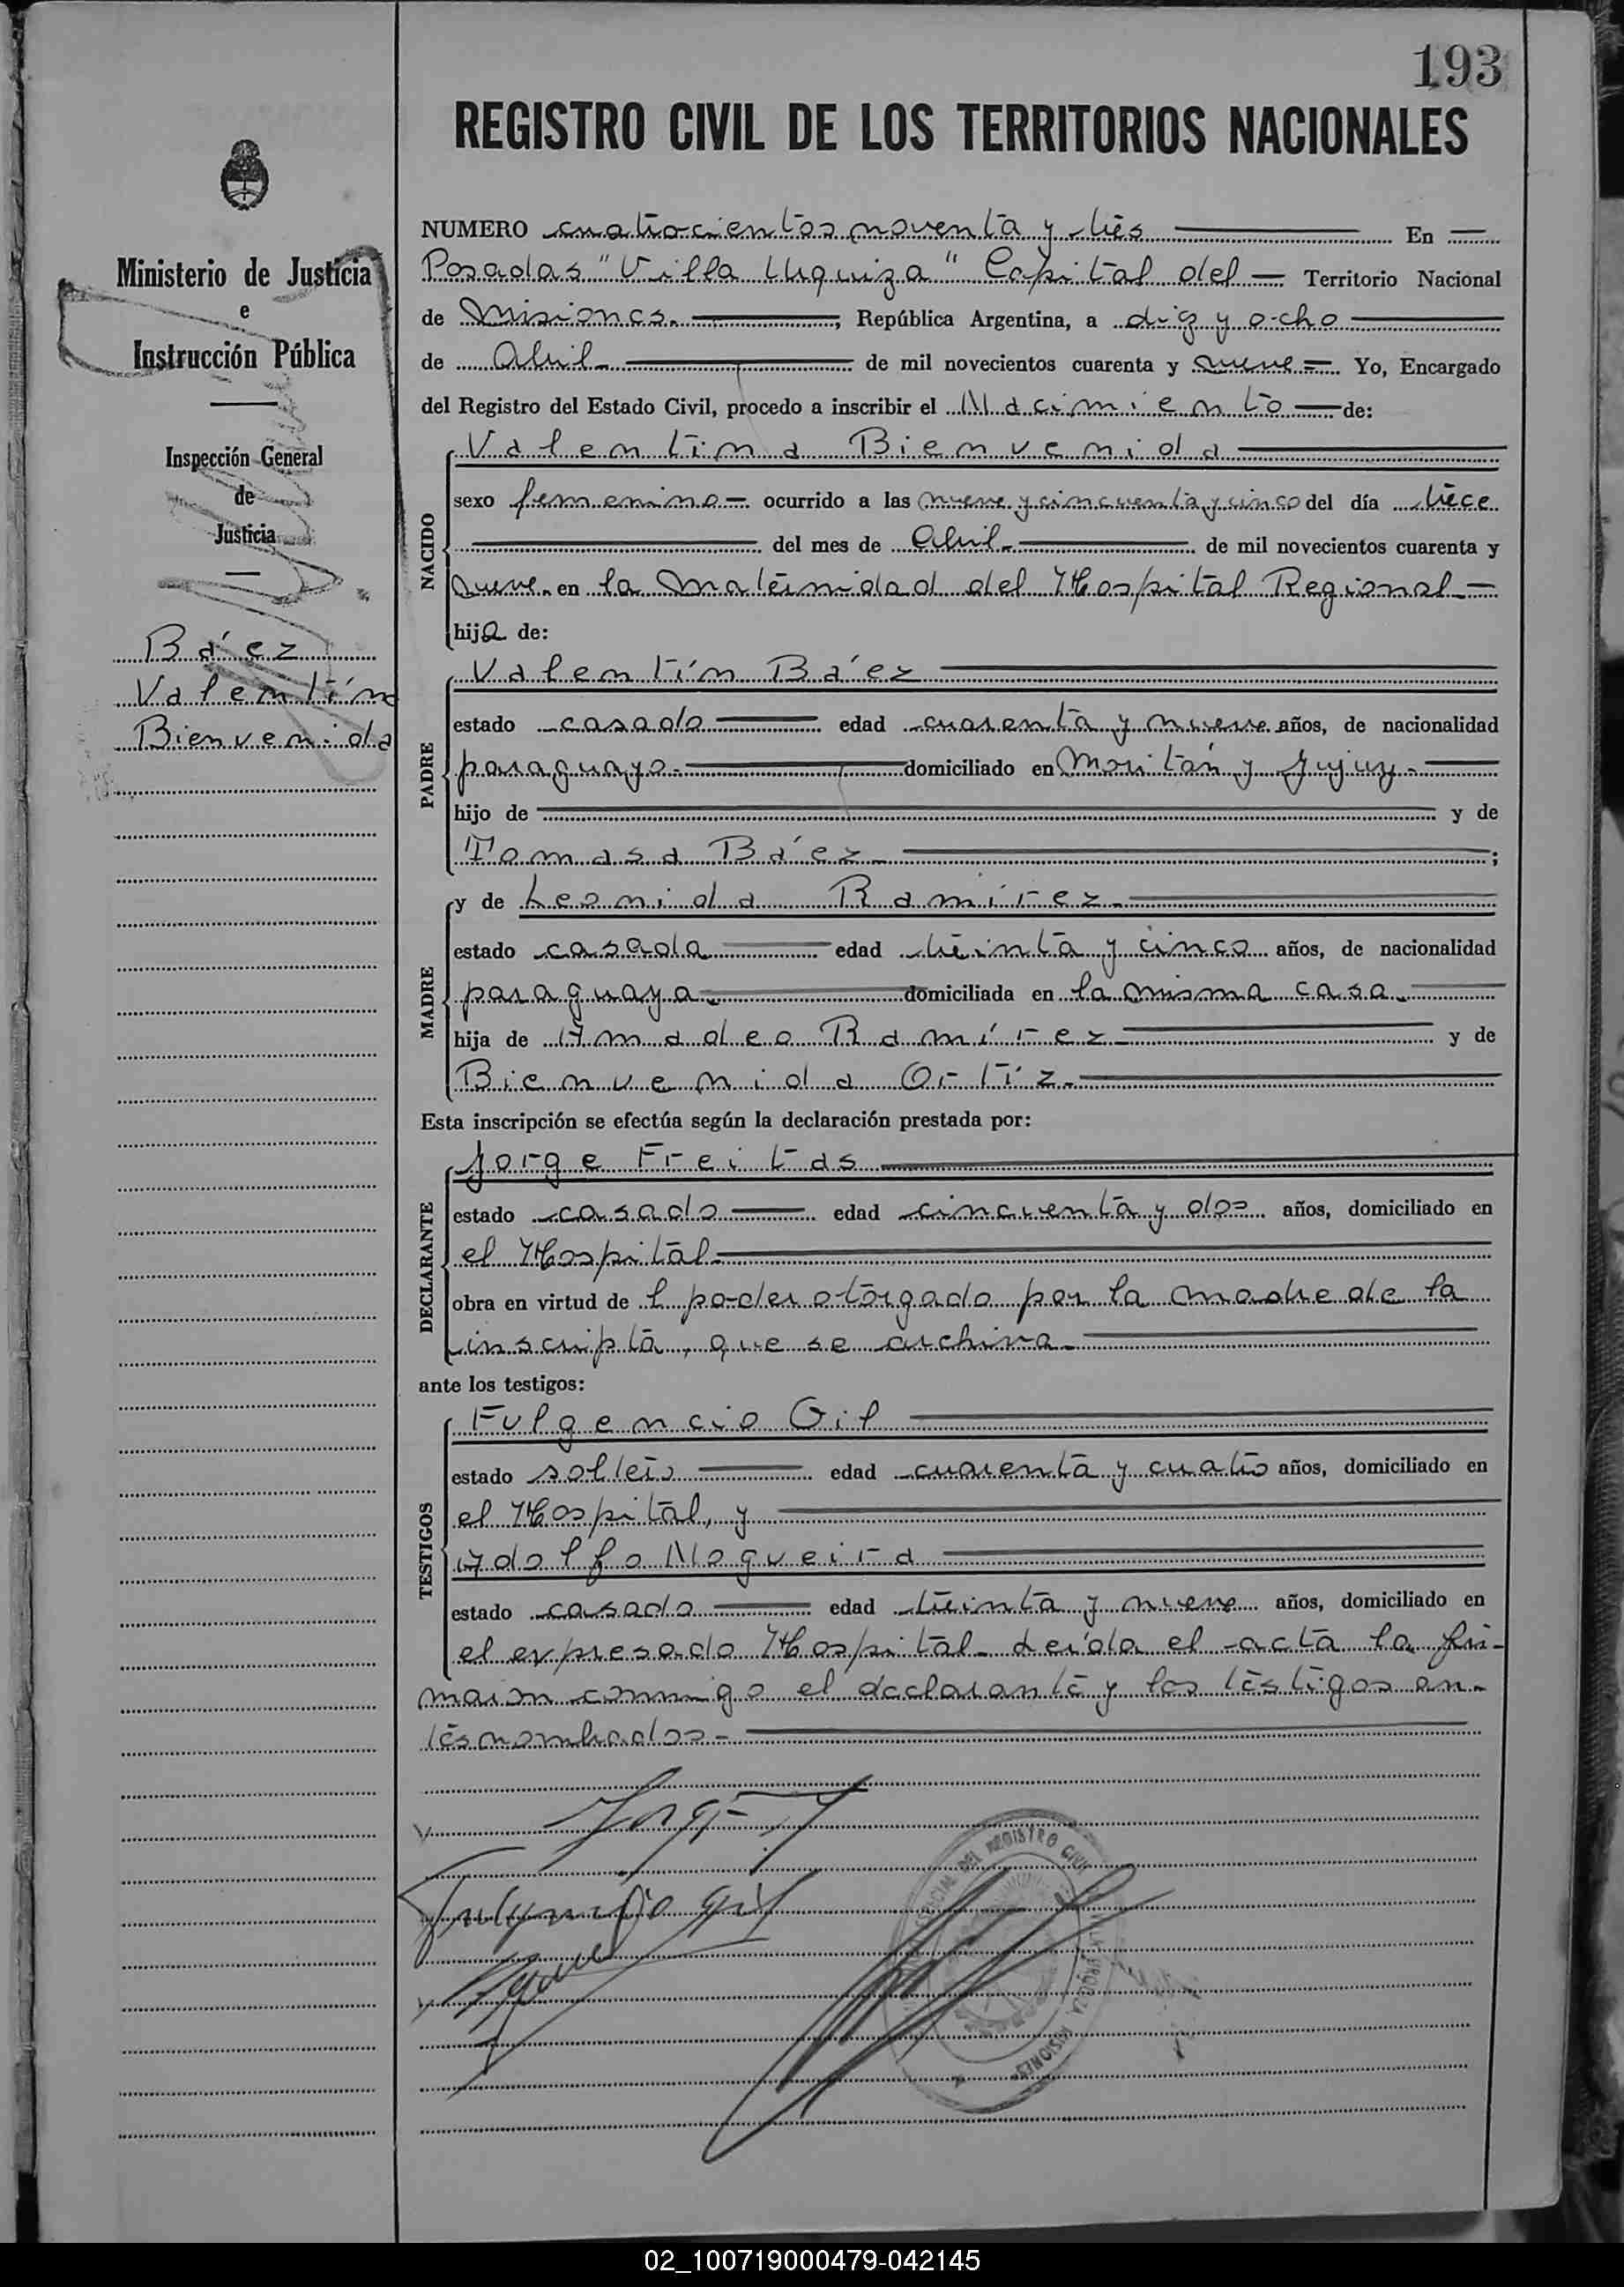 193
REGISTRO CIVIL DE LOS TERRITORIOS NACIONALES
Ministerio de Justicia
e
Instrucción Pública
Inspección General
de
Justicia
Báez
Valentina
Bienvenida
NUMERO cuatrocientos noventa y tres En
Posadas "Villa Urquiza" Capital del Territorio Nacional
de Misiones. , República Argentina, a diez y ocho
de Abril de mil novecientos cuarenta y nueve Yo, Encargado
del Registro del Estado Civil, procedo a inscribir el Nacimiento de:
NACIDO
Valentina Bienvenida
sexo femenino ocurrido a las nueve y cincuenta y cinco del día trece
del mes de Abril de mil novecientos cuarenta y
nueve en la Maternidad del Hospital Regional
hija de:
PADRE
Valentín Báez
estado casado edad cuarenta y nueve años, de nacionalidad
paraguayo domiciliado en y Jujuy
hijo de y de
Tomasa Báez ;
MADRE
y de Leonida Ramírez
estado casada edad treinta y cinco años, de nacionalidad
paraguaya domiciliada en la misma casa
hija de Amadeo Ramírez y de
Bienvenida Ortíz
Esta inscripción se efectúa según la declaración prestada por:
DECLARANTE
Jorge Freitas
estado casado edad cincuenta y dos años, domiciliado en
el Hospital
obra en virtud de l poder otorgado por la madre de la
inscripta, que se archiva
ante los testigos:
TESTIGOS
Fulgencio Gil
estado soltero edad cuarenta y cuatro años, domiciliado en
el Hospital, y
Adolfo Nogueira
estado casado edad treinta y nueve años, domiciliado en
el expresado Hospital. Leída el acta la fir-
maron conmigo el declarante y los testigos an-
tes nombrados
Fulgencio Gil
DEL REGISTRO CIVIL
VILLA URQUIZA MISIONES
02_100719000479-042145